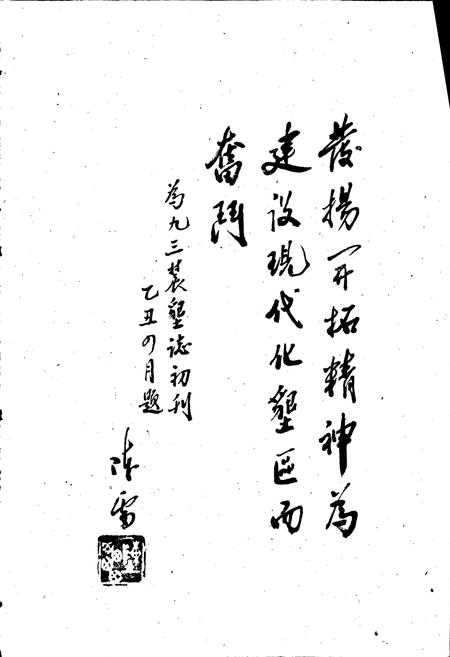 發揚开拓精神為
建設現代化墾區而
奮鬥
為九三農墾誌初刊
乙丑四月題
陈雷